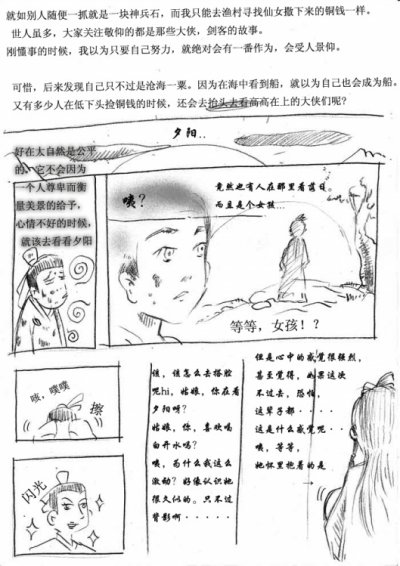 就如别人随便一抓就是一块神兵石，而我只能去渔村寻找仙女撒下来的铜钱一样。
世人虽多，大家关注敬仰的都是那些大侠，剑客的故事。
刚懂事的时候，我以为只要自己努力，就绝对会有一番作为，会受人景仰。
可惜，后来发现自己只不过是沧海一粟。因为在海中看到船，就以为自己也会成为船。
又有多少人在低下头捡铜钱的时候，还会去抬头去看高高在上的大侠们呢？
夕阳..
好在大自然是公平
的，它不会因为
一个人尊卑而衡
量美景的给予，
心情不好的时候，
就该去看看夕阳
咦？
竟然也有人在那里看黄昏。
而且是个女孩...
等等，女孩！？
咳，噗噗
擦
闪光
咳，该怎么去搭脸
呢hi，姑娘，你在看
夕阳呀？
姑娘，你，喜欢喝
白开水吗？
咦，为什么我这么
激动？好像认识她
很久似的。只不过
背影啊······
但是心中的感觉很强烈，
甚至觉得，如果这次
不过去，恐怕，
这辈子都····
这是什么感觉呢··
咦，等等，
她怀里抱着的是